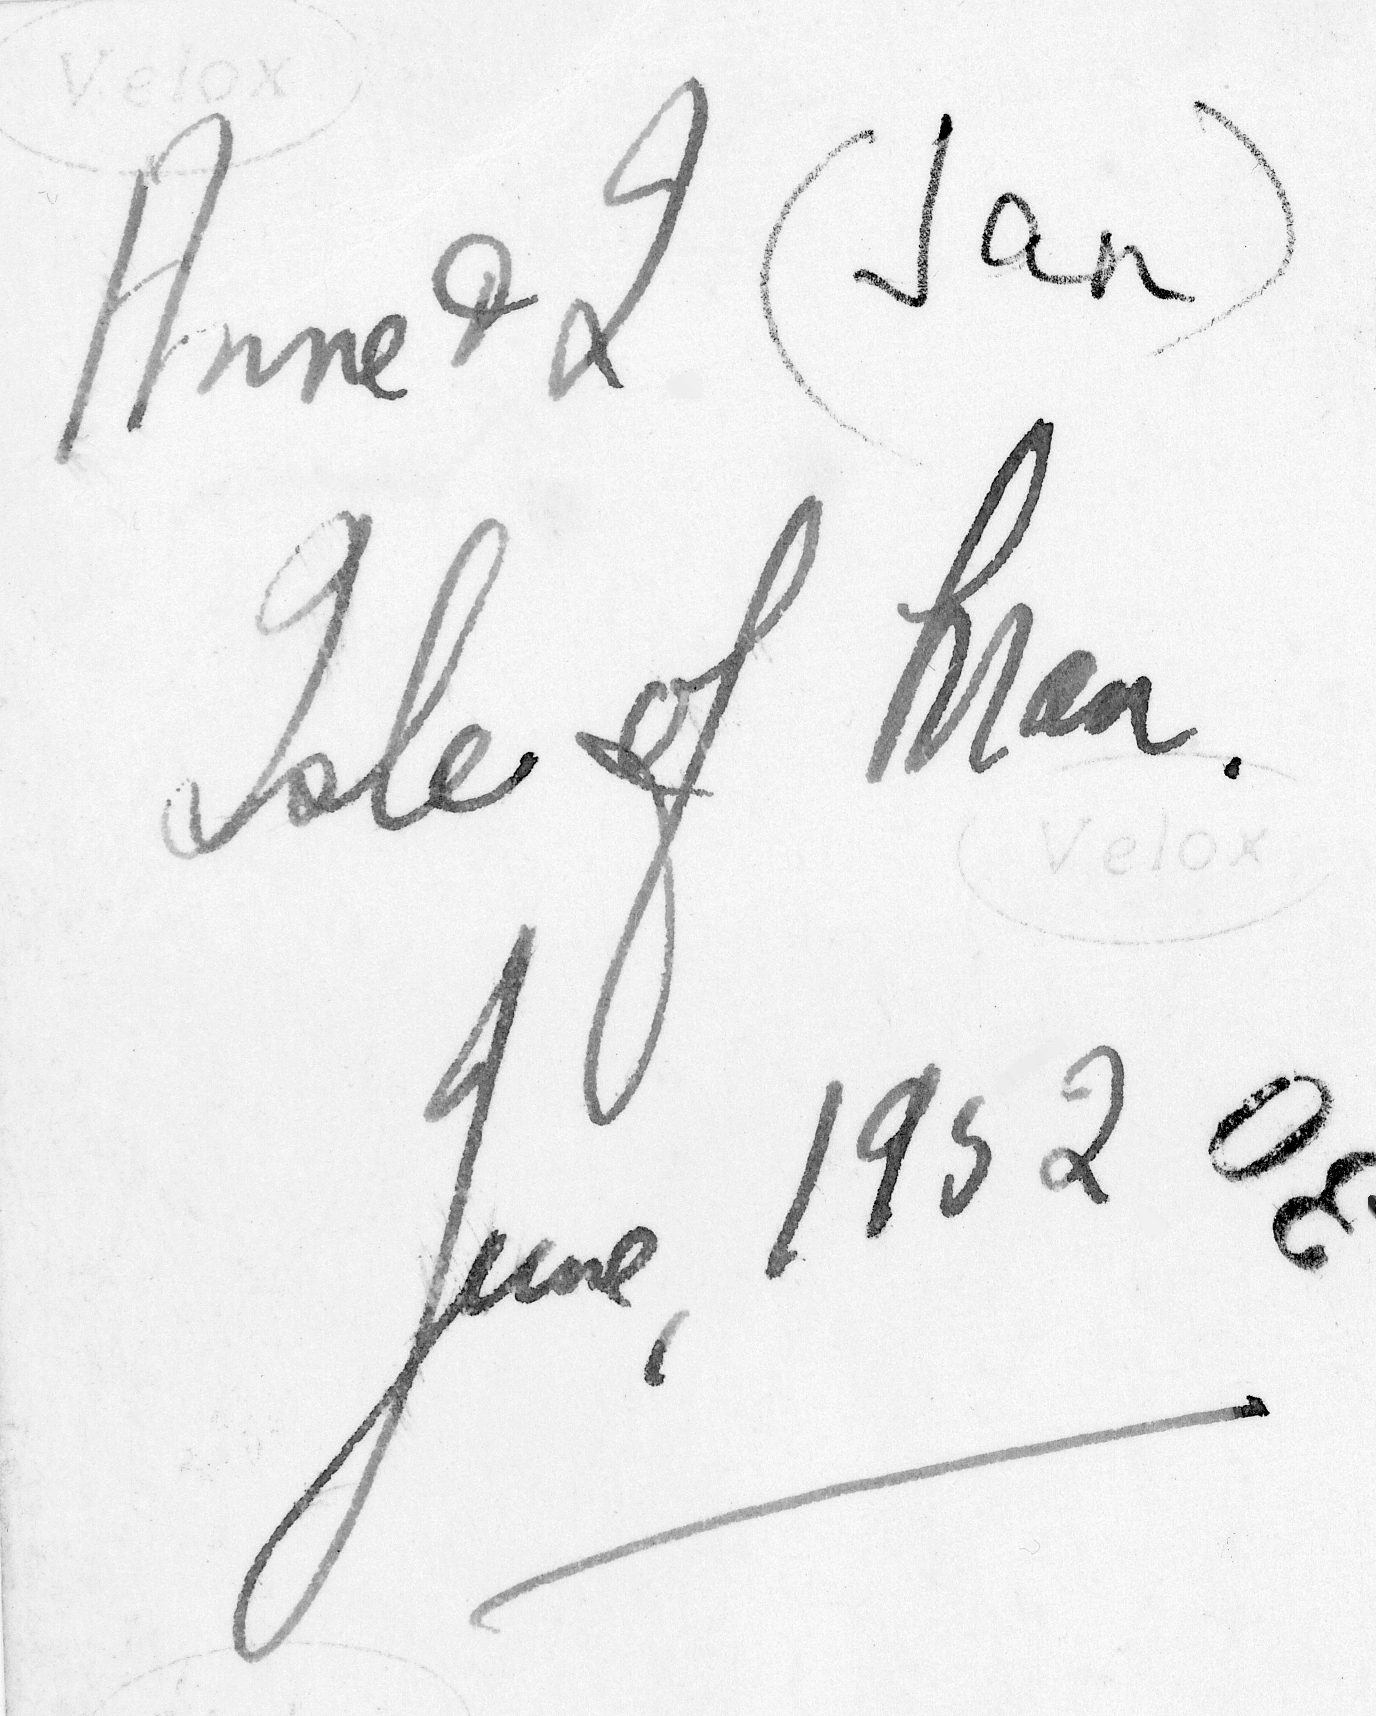 Velox
Anne & I (Jan)
Isle of Man.
Velox
June, 1952